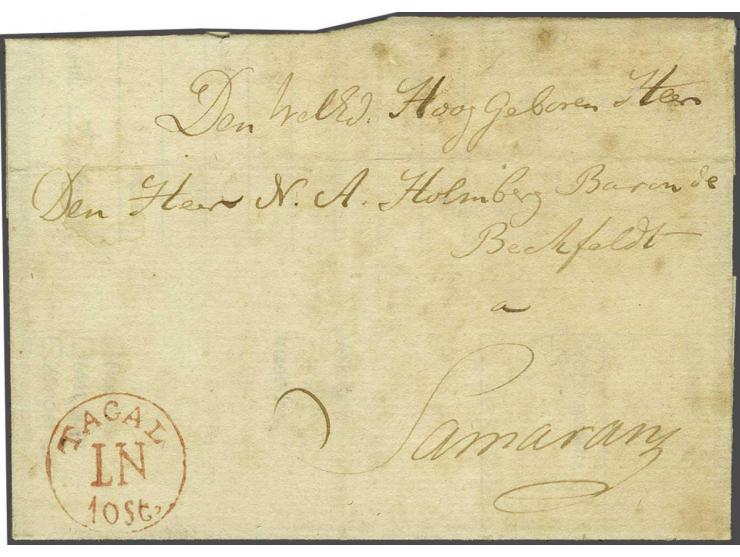 Den WelEd. Hoog Geboren Heer
Den Heer N. A. Holmberg Baron de
Beckfeldt
a
Samarang
TAGAL
LN
10 St: